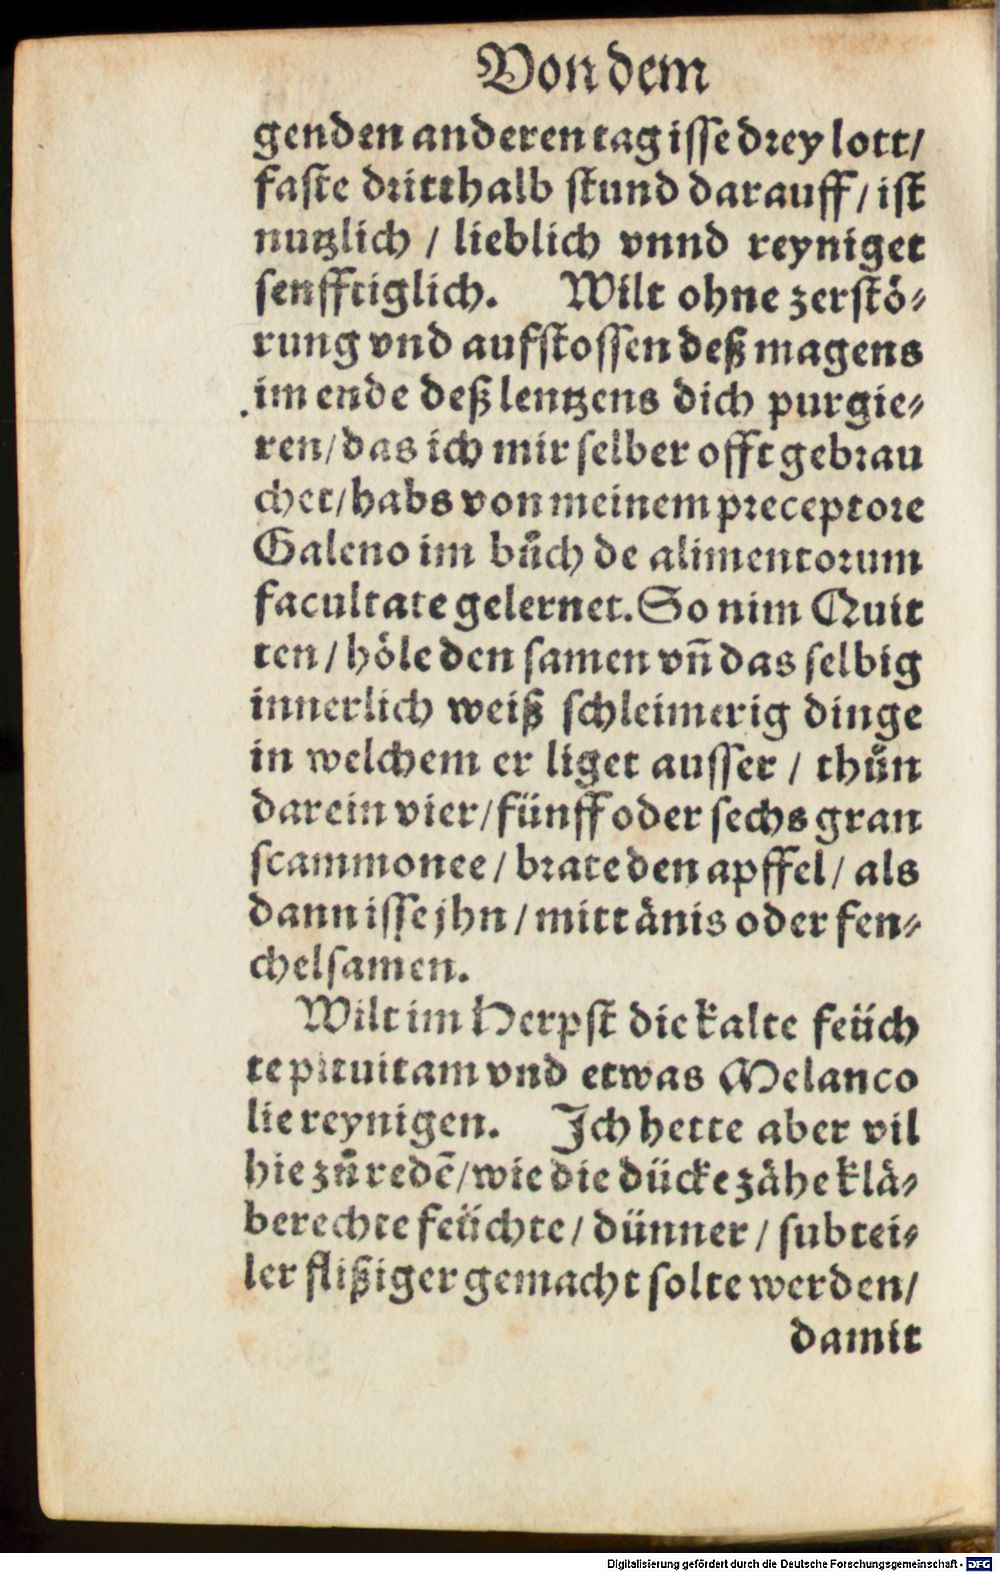 Von dem
genden anderen tag isse drey lott/
faste dritthalb stund darauff/ ist
nutzlich / lieblich vnnd reyniget
senfftiglich. Wilt ohne zerstö⸗
rung vnd aufstossen deß magens
im ende deß lentzens dich purgie⸗
ren/ das ich mir selber offt gebrau
chet/ habs von meinem preceptore
Galeno im bůch de alimentorum
facultate gelernet. So nim Quit
ten / höle den samen vñ das selbig
innerlich weiß schleimerig dinge
in welchem er liget ausser / thůn
darein vier/ fünff oder sechs gran
scammonee / brate den apffel/ als
dann isse jhn / mitt änis oder fen⸗
chelsamen.
Wilt im Herpst die kalte feüch
te pituitam vnd etwas Melanco
lie reynigen. Ich hette aber vil
hie zů redẽ/ wie die dücke zähe klä⸗
berechte feüchte/ dünner / subtei⸗
ler flißiger gemacht solte werden/
damit
Digitalisierung gefördert durch die Deutsche Forschungsgemeinschaft - DFG